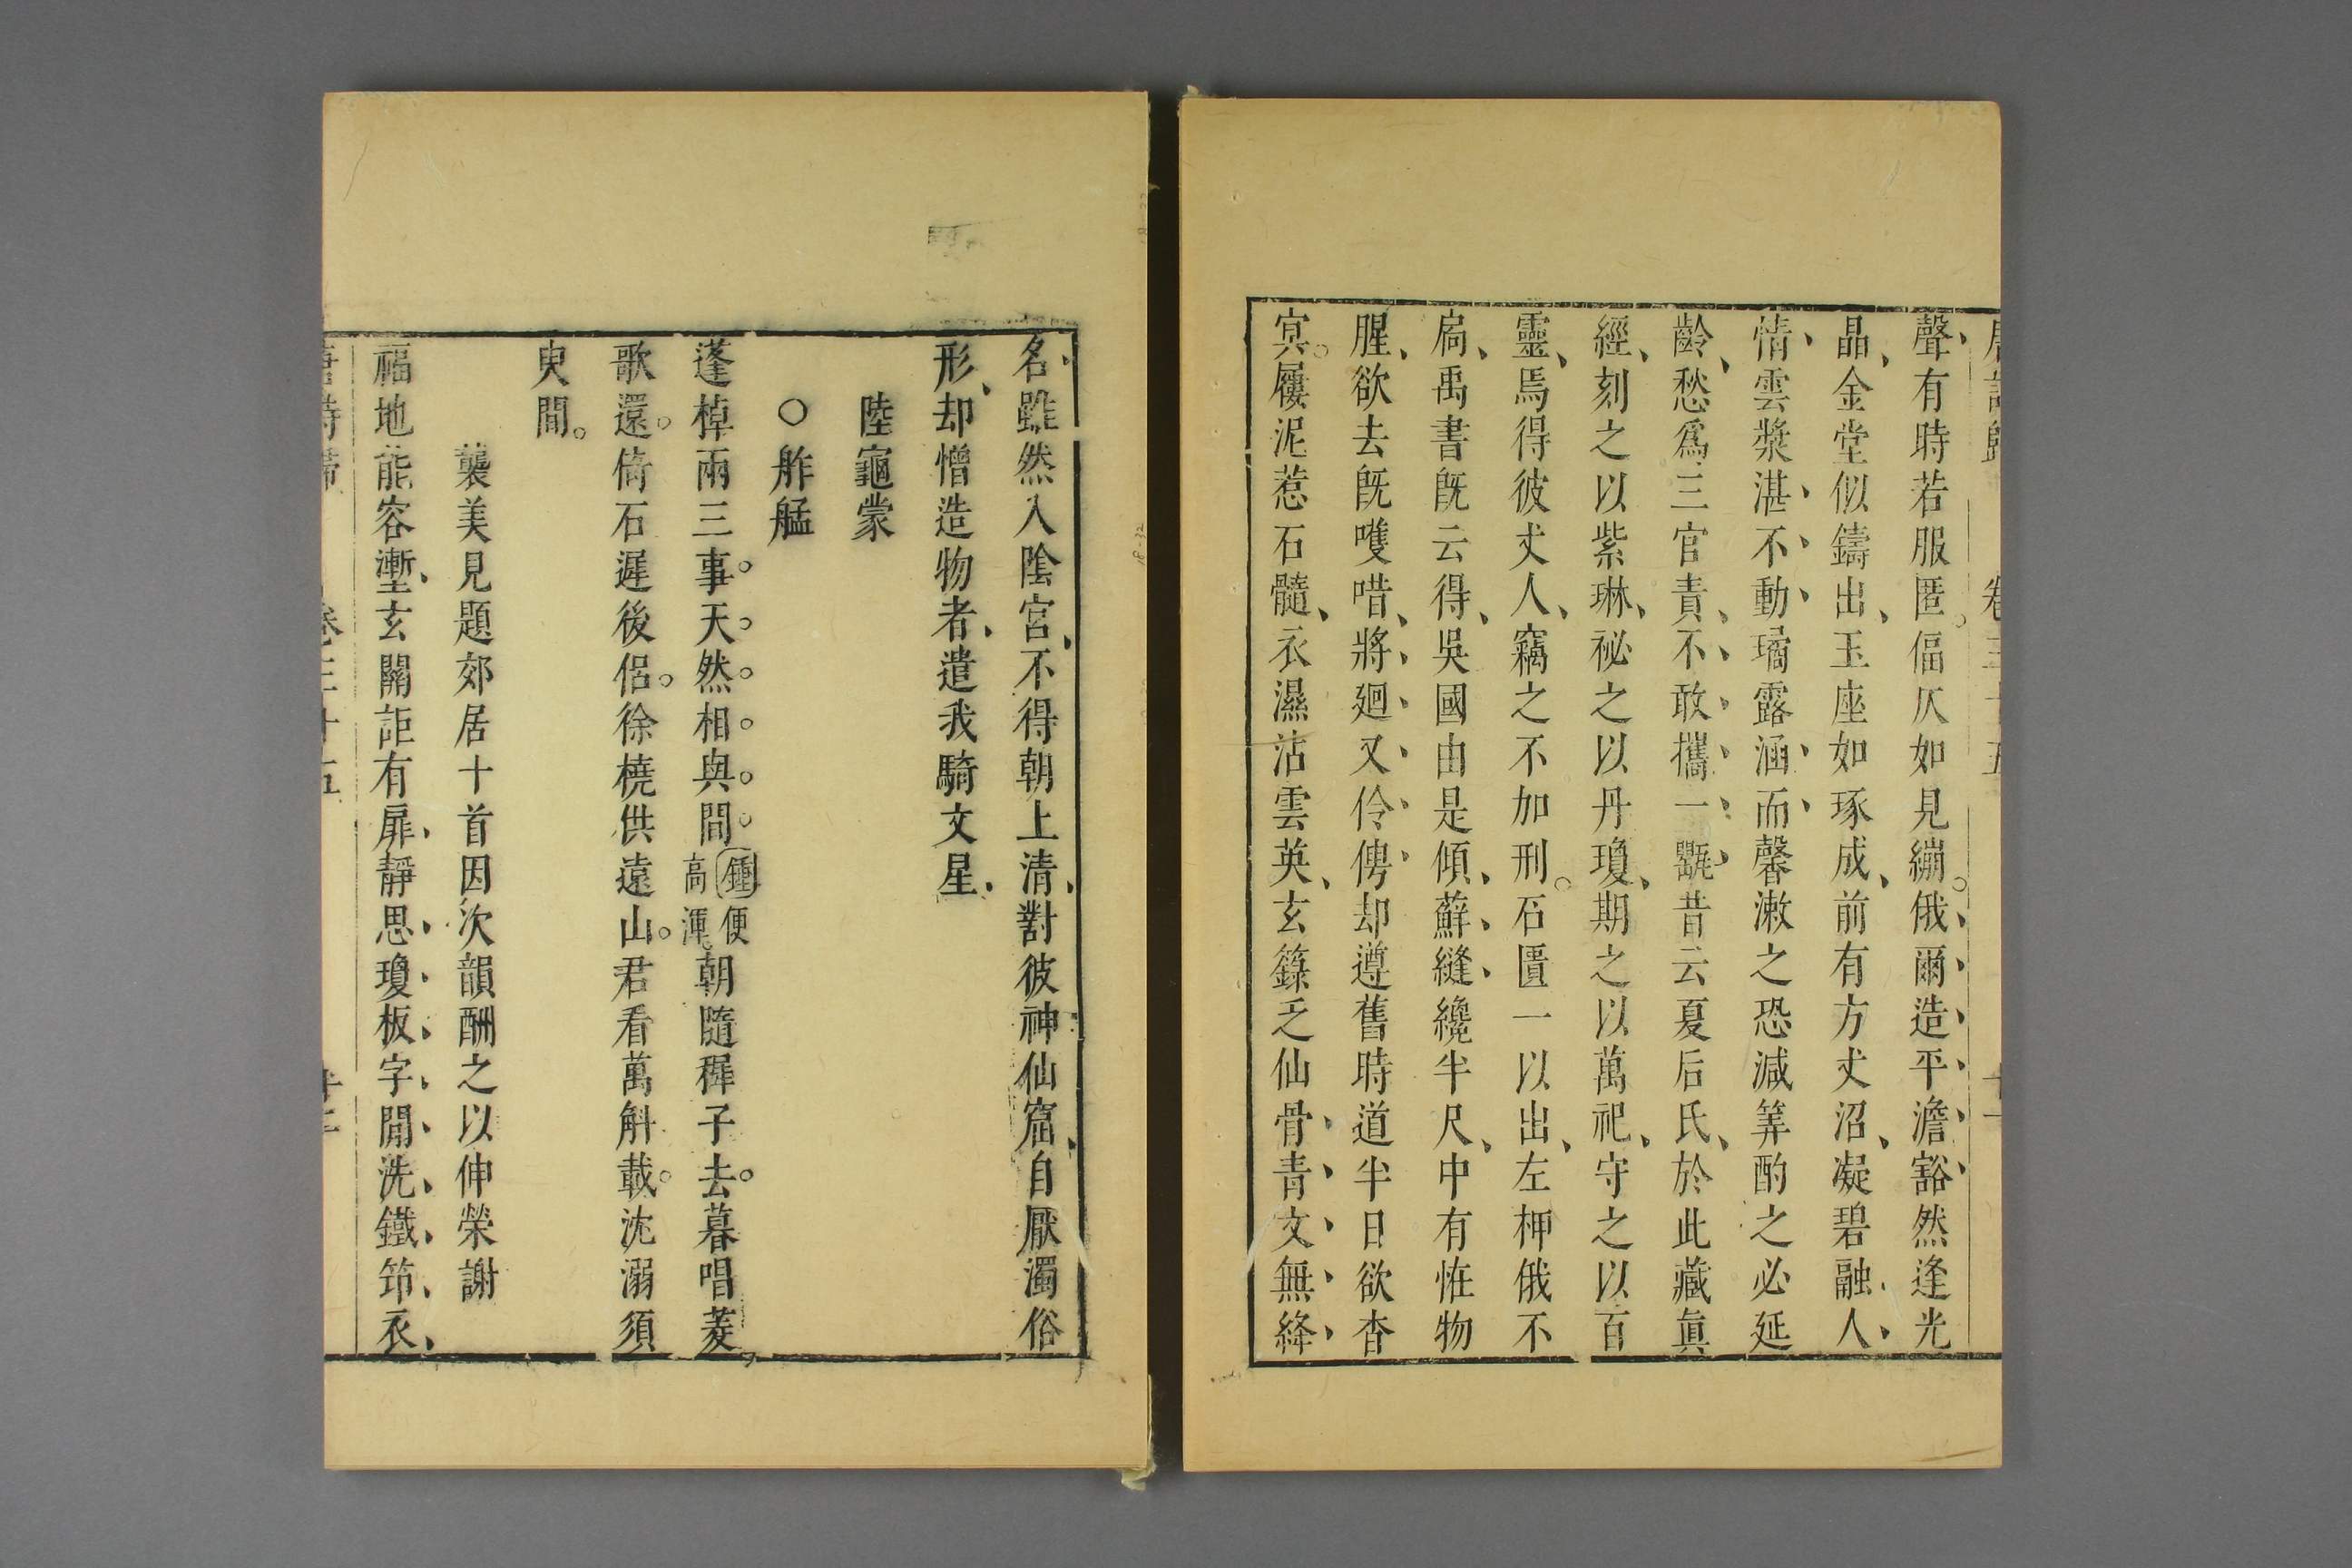 聲有時若服匿偪仄如見繃俄爾造平澹豁然逢光
晶金堂似鑄出玉座如琢成前有方丈沼凝碧融人
情雲漿湛不動璚露涵而馨漱之恐減筭酌之必延
齡愁爲三官責不敢攜一甖昔云夏后氏於此藏眞
經刻之以紫琳祕之以丹瓊期之以萬祀守之以百
靈焉得彼丈人竊之不加刑石匱一以出左神俄不
扃禹書旣云得吳國由是傾蘚縫纔半尺中有恠物
腥欲去旣嚄唶將廻又伶俜却遵舊時道半日欲杳
冥屨泥惹石髓衣濕沾雲英玄籙乏仙骨青文無絳
名雖然入陰宮不得朝上清對彼神仙窟自厭濁俗
形却憎造物者遣我騎文星
陸龜蒙
○舴艋
蓬棹兩三事天然相與閒鍾便高渾朝隨稺子去暮唱菱
歌還倚石遲後侶徐橈供遠山君看萬斛載沈溺須
臾間
襲美見題郊居十首因次韻酬之以伸榮謝
福地能容塹玄關詎有扉靜思瓊板字閒洗鐵筇衣